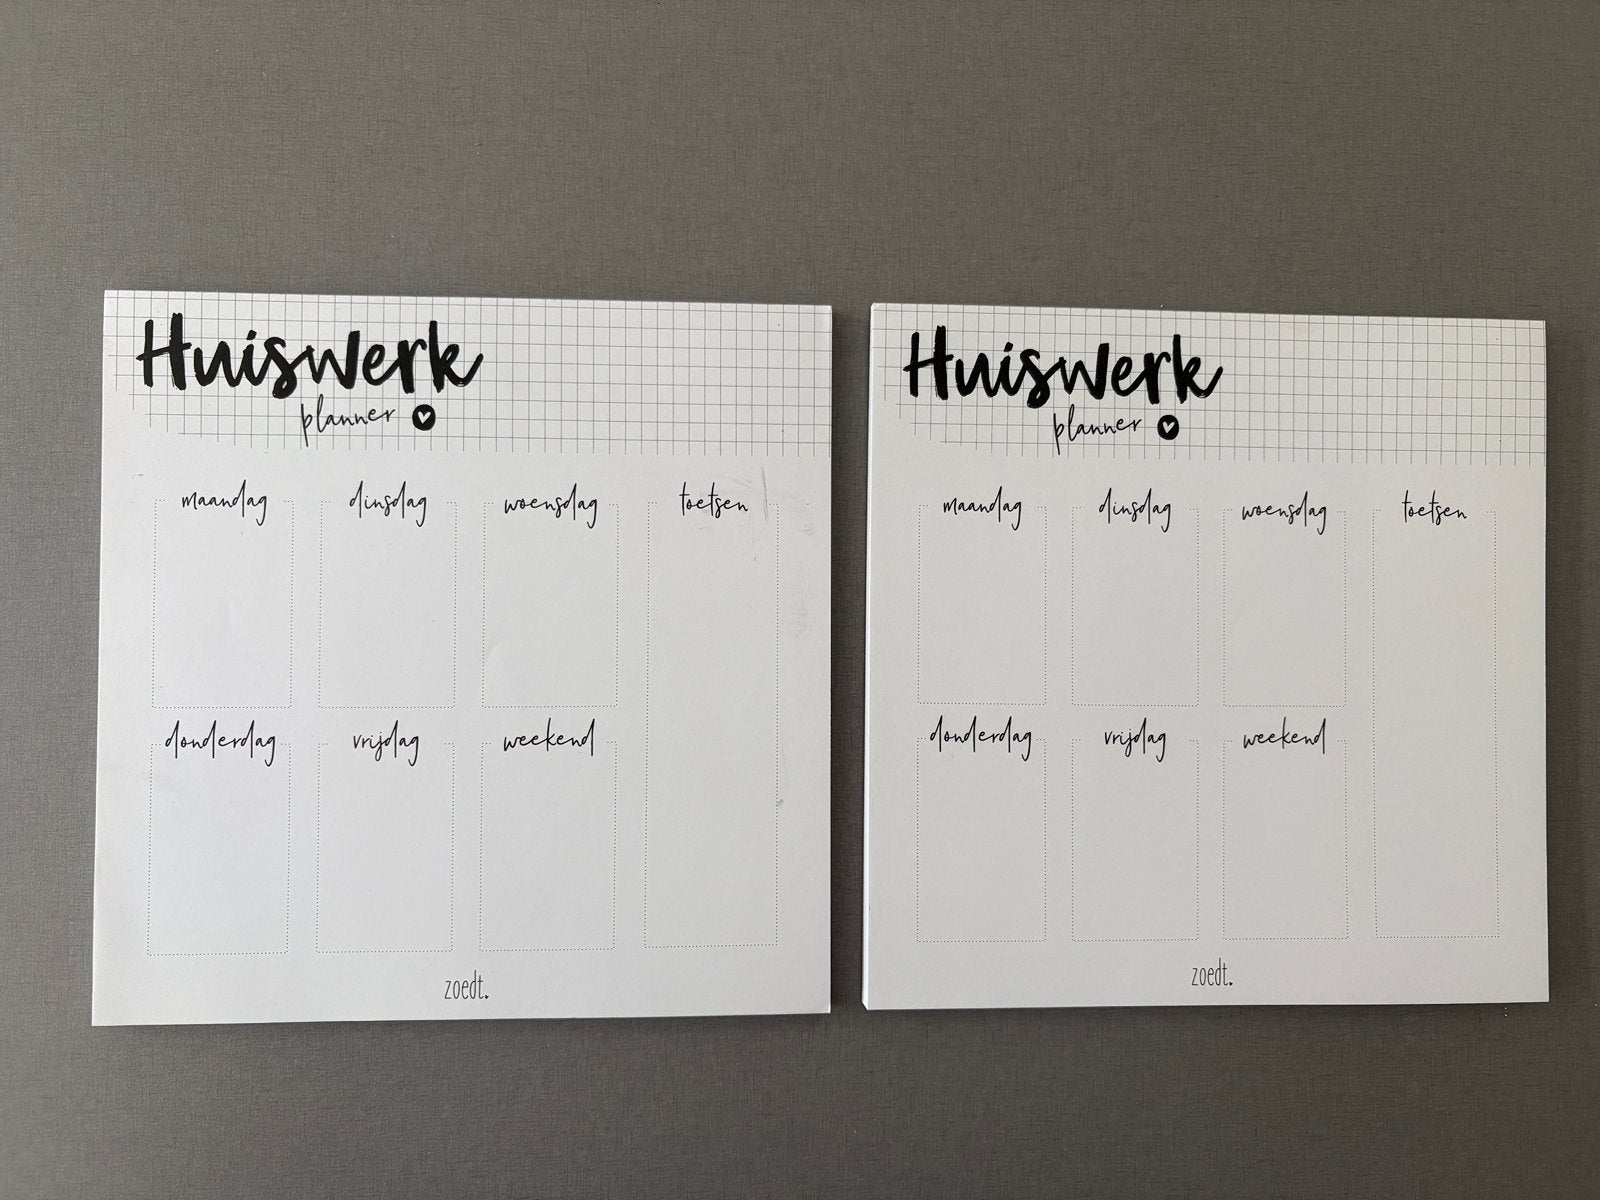 Huiswerk
planner
maandag dinsdag woensdag toetsen
donderdag vrijdag weekend
zoedt.
Huiswerk
planner
maandag dinsdag woensdag toetsen
donderdag vrijdag weekend
zoedt.